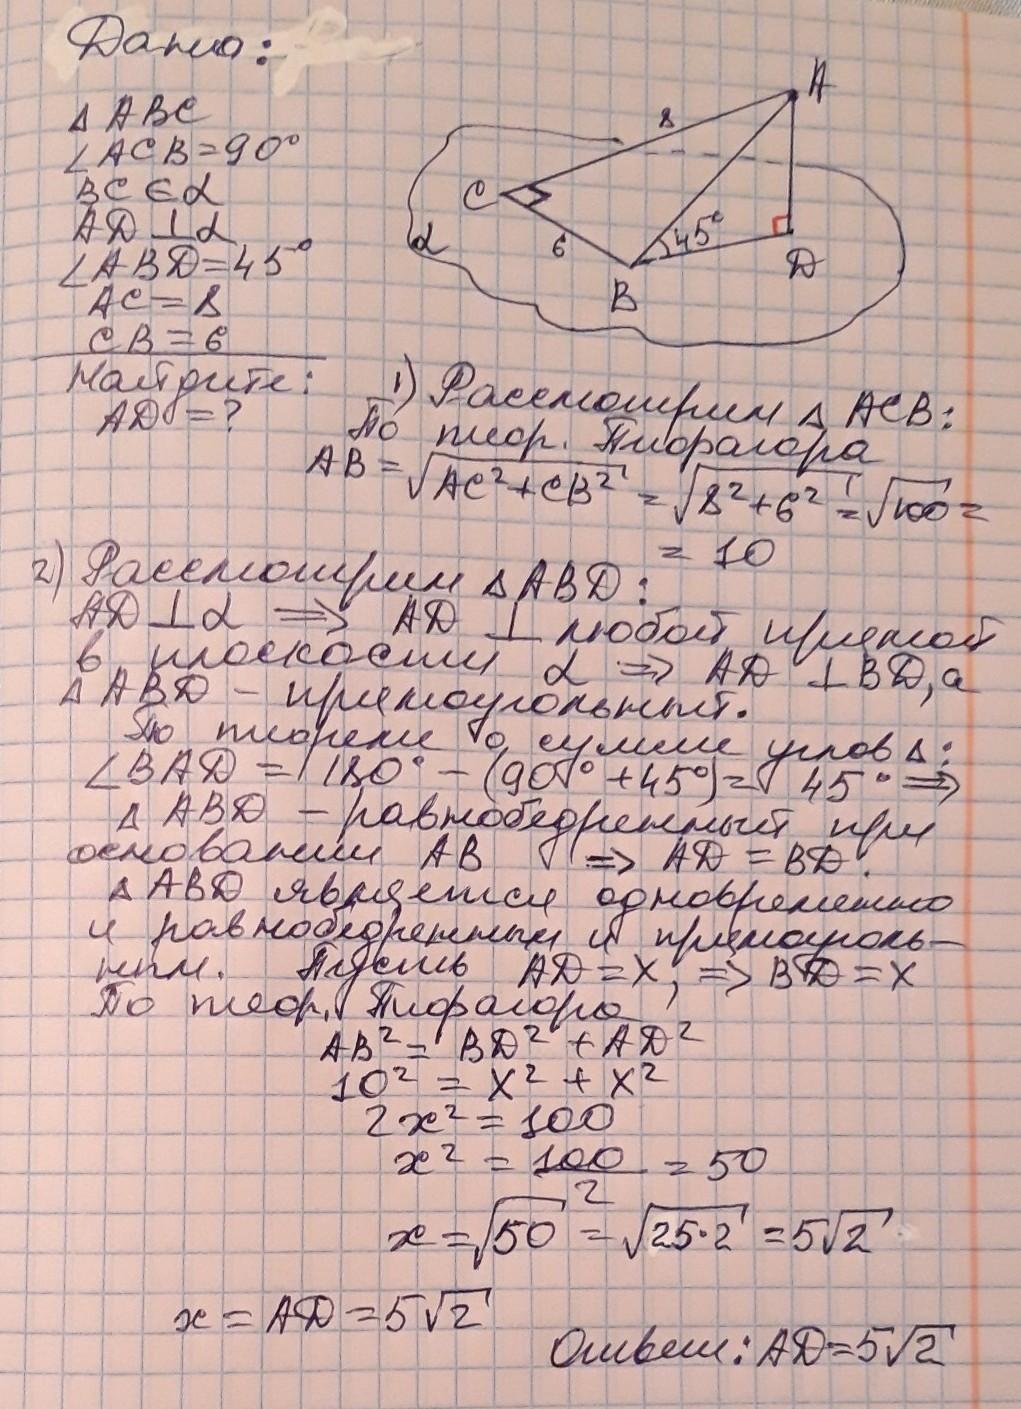 Дано:
△ ABC
∠ACB=90°
BC ∈ α
AD ⊥ α
∠ABD=45°
AC = 8
CB = 6
Найдите:
AD = ?
A
8
C
α
6
45°
B
D
1) Рассмотрим △ ACB:
По теор. Пифагора
AB = √AC²+CB² = √8²+6² = √100 =
= 10
2) Рассмотрим △ABD:
AD ⊥ α ⇒ AD ⊥ любой прямой
в плоскости α ⇒ AD ⊥ BD, а
△ ABD – прямоугольный.
По теореме о сумме углов △:
∠BAD = 180° – (90° + 45°) = 45° ⇒
△ ABD – равнобедренный при
основании AB ⇒ AD = BD.
△ ABD является одновременно
и равнобедренным и прямоуголь–
ным. Пусть AD = x, ⇒ BD = x
По теор. Пифагора
AB² = BD² + AD²
10² = x² + x²
2x² = 100
x² = 100/2 = 50
x = √50 = √25·2 = 5√2
x = AD = 5√2
Ответ: AD = 5√2